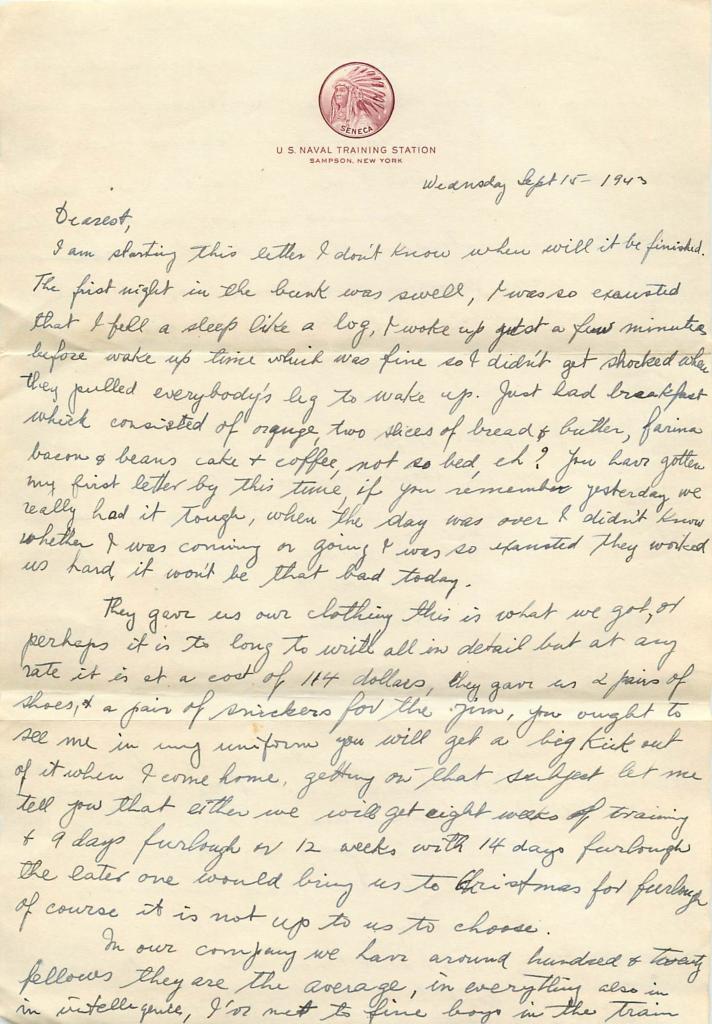 SENECA
U. S. NAVAL TRAINING STATION
SAMPSON, NEW YORK
Wednsday Sept 15 - 1943
Dearest,
I am starting this letter I don't know when will it be finished.
The first night in the bunk was swell, I was so exausted
that I fell a sleep like a log, I woke up just a few minutes
before wake up time which was fine so I didn't get shocked when
they pulled everybody's leg to wake up. Just had breakfast
which consisted of orange, two slices of bread & butter, farina
bacon & beans cake + coffee, not so bed, eh? You have gotten
my first letter by this time, if you remember yesterday we
really had it tough, when the day was over I didn't know
whether I was coming or going I was so exausted they worked
us hard, it won't be that bad today.
They gave us our clothing this is what we got, or
perhaps it is to long to write all in detail but at any
rate it is at a cost of 114 dollars, they gave us 2 pairs of
shoes, & a pair of snickers for the jim, you ought to
see me in my uniform you will get a big kick out
of it when I come home, getting on that subject let me
tell you that either we will get eight weeks of training
+ 9 days furlough or 12 weeks with 14 days furlough
the later one would bring us to Christmas for furlough
of course it is not up to us to choose.
In our company we have around hundred & twenty
fellows they are the average, in everything also in
in intelligence, I've met to fine boys in the train